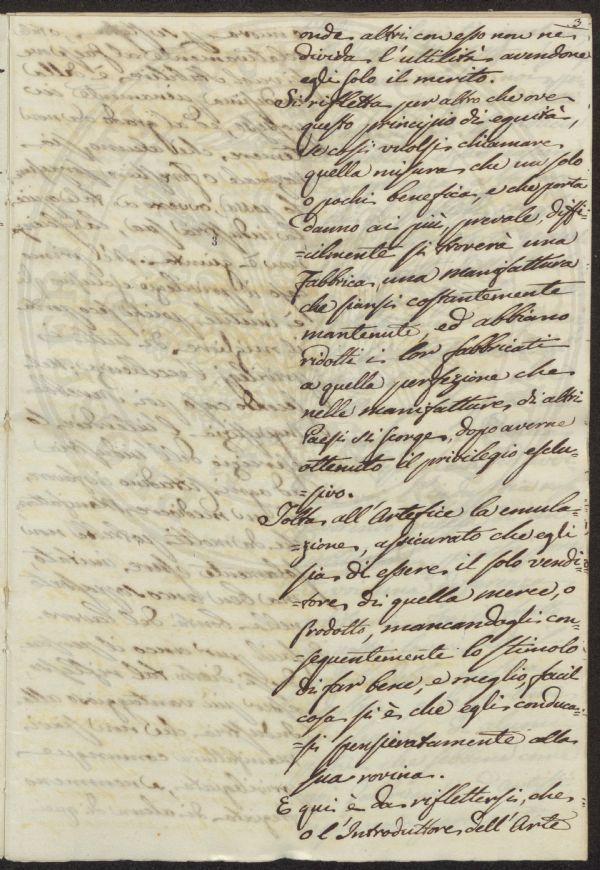 3
onde altri con esso non ne
divida l'utilità avendone
egli solo il merito.
Si rifletta per altro che ove
questo principio di equità,
se così vuolsi chiamare
quella misura che un solo
o pochi benefica, e che porta
danno ai più, prevale, diffi
=cilmente si troverà una
Fabbrica, una manifattura
che siansi costantemente
mantenute, ed abbiano
ridotti i lor fabbricati
a quella perfezione che
nelle manifatture di altri
Paesi si scorge, dopo averne
ottenuto il privilegio esclu=
=sivo.
Tolta all'Artefice la emula=
=zione, assicurato che egli
sia di essere il solo vendi=
=tore di quella merce, o
Prodotto, mancandogli con=
=seguentemente lo stimolo
di far bene, e meglio, facil
cosa si è che egli conduca=
=si spensieratamente alla
sua rovina.
E qui è da riflettersi, che
o l'Introduttore dell'Arte
3